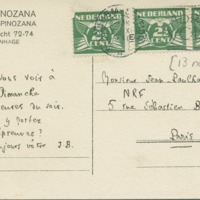 NOZANA
PINOZANA
cht 72-74
NHAGE
NEDERLAND
2½
CENT
NEDERLAND
2½
CENT
[13
Vous voir à
Dimanche
heures du soir.
y parler
épreuves?
Toujours vôtre J.B.
Monsieur Jean Paulhan
NRF
5 rue Sébastien B
Paris